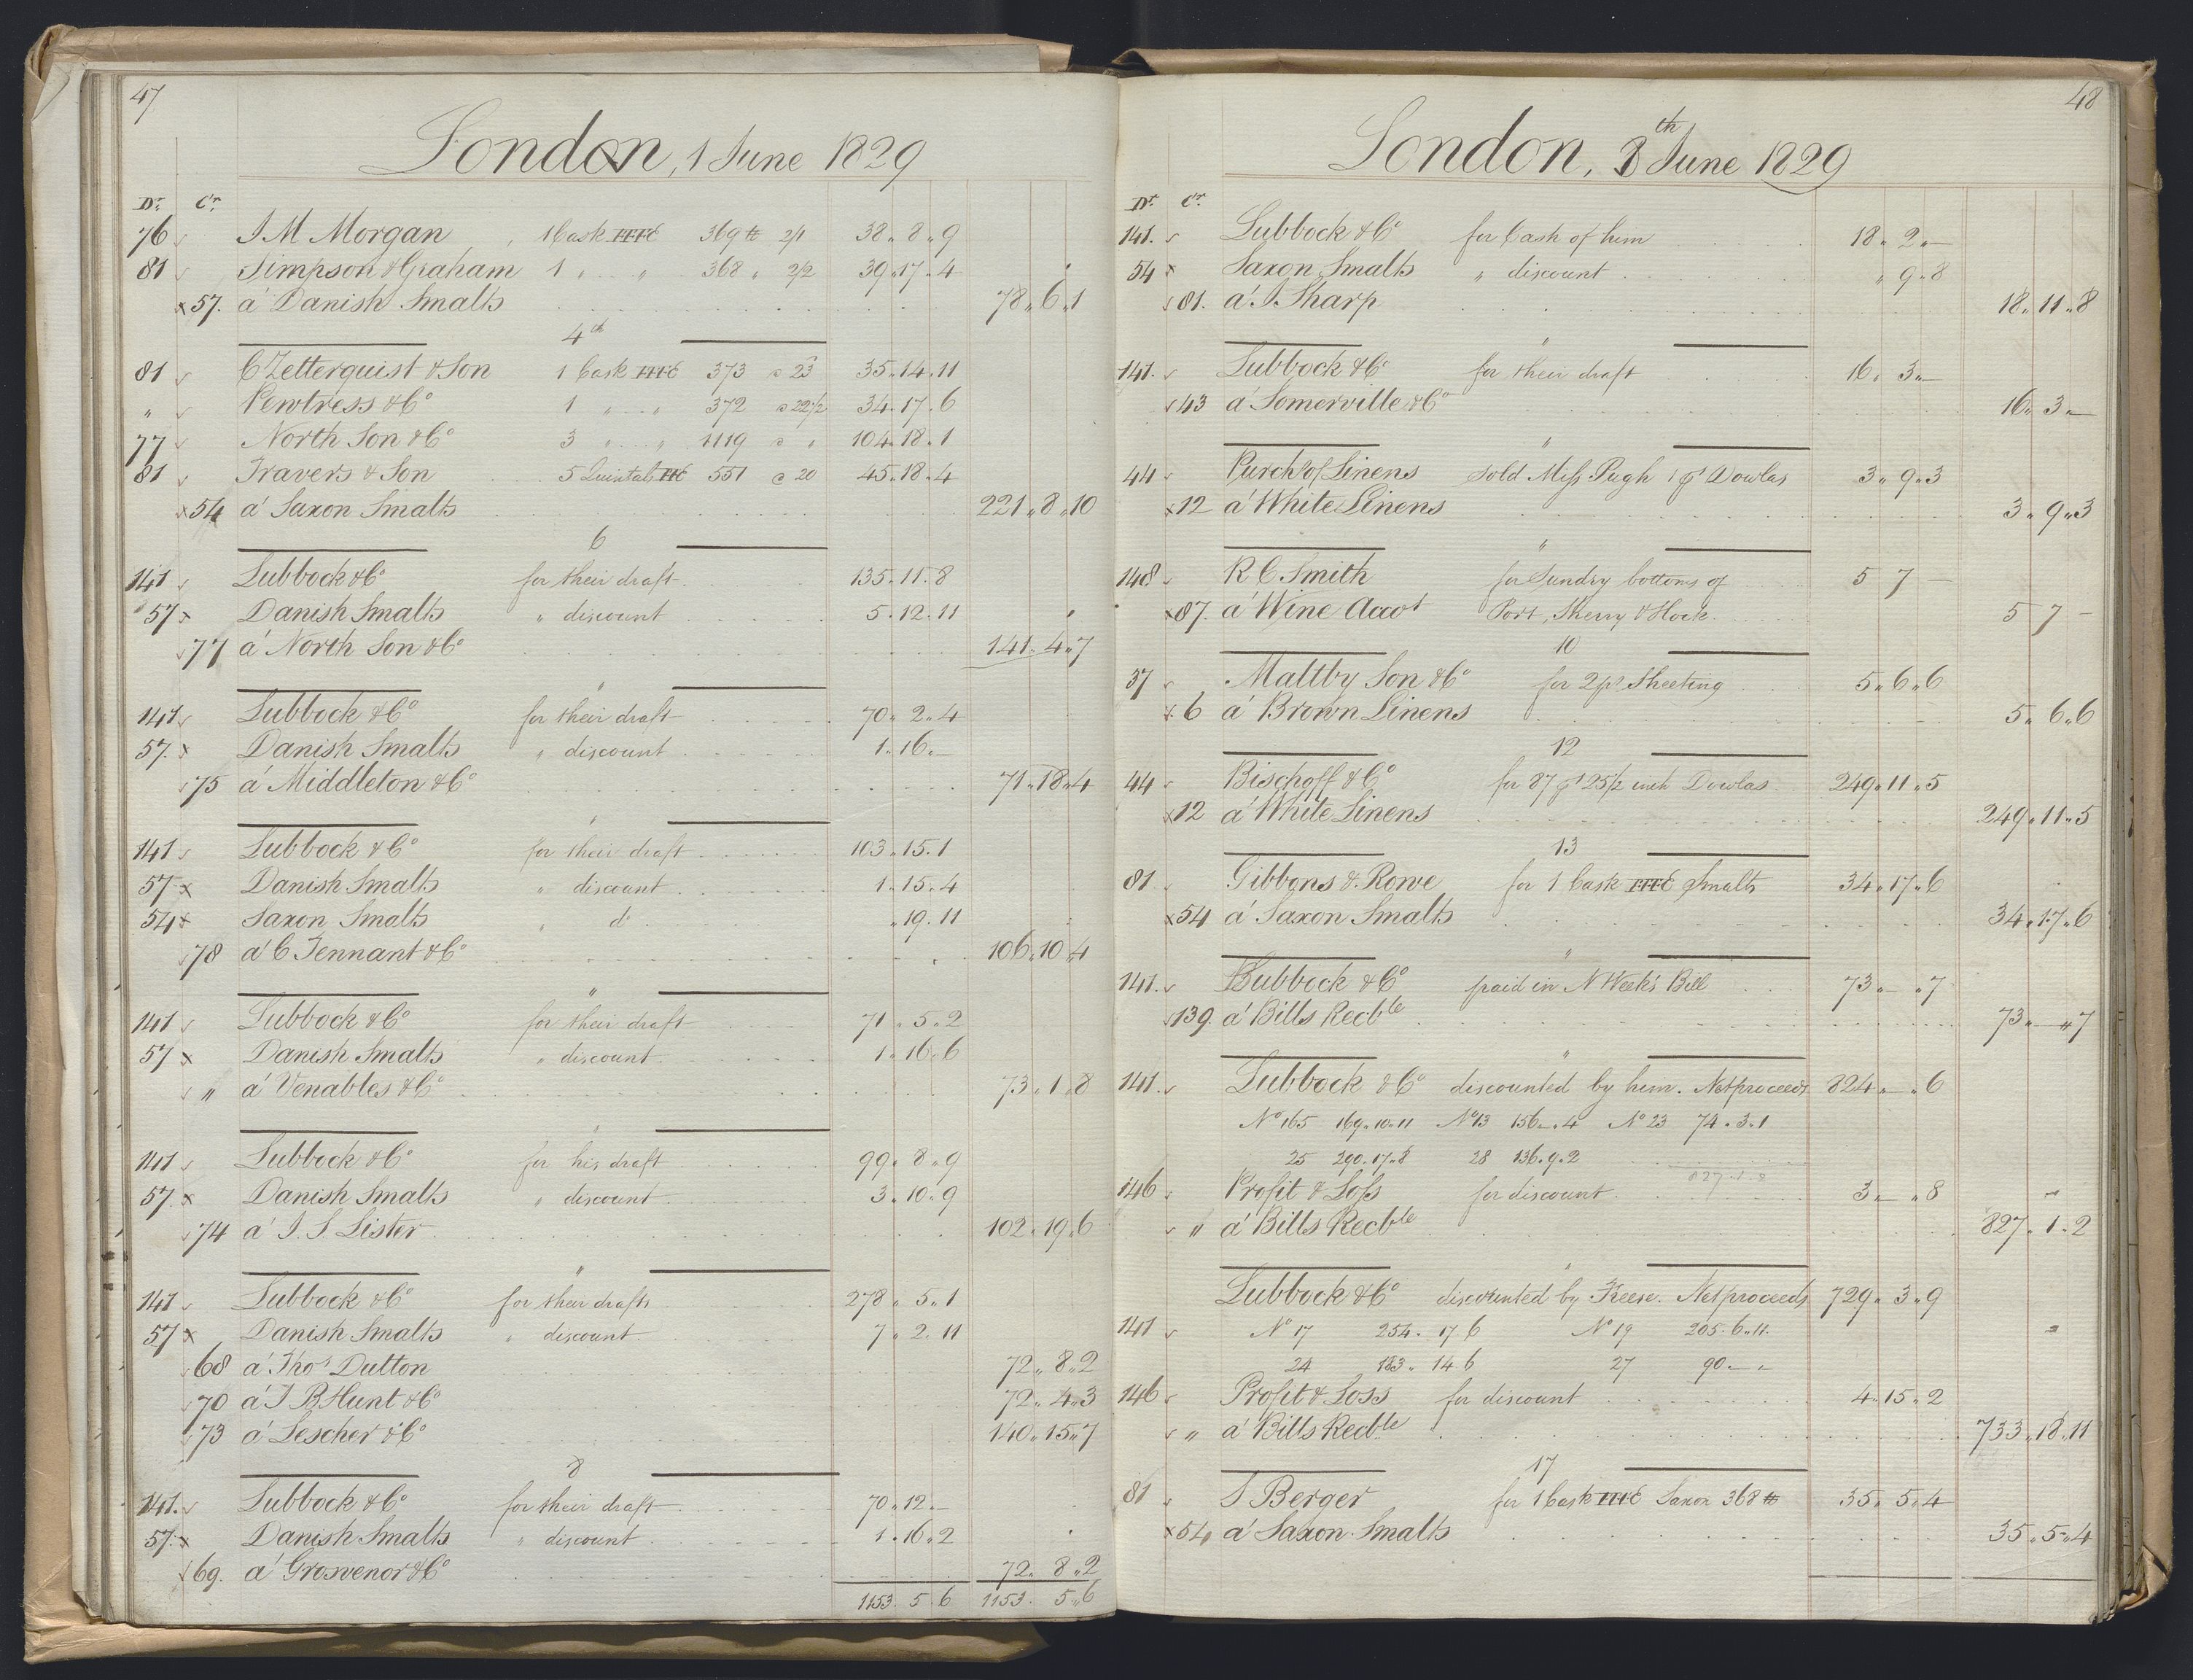 47
London, 1 June 1829
Dr. Cr.
76 J M Morgan 1 Cask FFFC 369 lb 2/1 38 " 8 " 9
81 Simpson & Graham 1 " " 368 " 2/2 39 " 17 " 4
57. a Danish Smalts 78 " 6 " 1
4th
81 C Zetterquist & Son 1 Cask FFFC 373 a 23 35 " 14 " 11
" Pewtress & Co 1 " " 372 a 22 1/2 34 " 17 " 6
77 North Son & Co 3 " " 1119 a " 104 " 18 " 1
81 Travers & Son 5 Quintals FFC 551 a 20 45 " 18 " 4
54 a Saxon Smalts 221 " 8 " 10
6
141 Lubbock & Co for their draft 135 " 11 " 8
57 Danish Smalts " discount 5 " 12 " 11
77 a North Son & Co 141 " 4 " 7
"
141 Lubbock & Co for their draft 70 " 2 " 4
57. Danish Smalts " discount 1 " 16 " —
75 a Middleton & Co 71 " 18 " 4
"
141 Lubbock & Co for their draft 103 " 15 " 1
57 Danish Smalts " discount 1 " 15 " 4
54 Saxon Smalts " do " 19 " 11
78 a C Tennant & Co 106 " 10 " 4
"
141 Lubbock & Co for their draft 71 " 5 " 2
57 Danish Smalts " discount 1 " 16 " 6
" a Venables & Co 73 " 1 " 8
"
141 Lubbock & Co for his draft 99 " 8 " 9
57. Danish Smalts " discount 3 " 10 " 9
74 a J. S. Lister 102 " 19 " 6
"
141 Lubbock & Co for their drafts 278 " 5 " 1
57 Danish Smalts " discount 7 " 2 " 11
68 a Thos Dutton 72 " 8 " 2
70 a J B Hunt & Co 72 " 4 " 3
73 a Lescher & Co 140 " 15 " 7
8
141. Lubbock & Co for their draft 70 " 12 " —
57. Danish Smalts " discount 1 " 16 " 2
69. a Grosvenor & Co 72 " 8 " 2
1153 " 5 " 6 1153 " 5 " 6
48
London, 8th June 1829
Dr. Cr.
141. Lubbock & Co for Cash of him 18 " 2 " —
54 Saxon Smalts " discount " 9 " 8
81. a J Sharp 18 " 11 " 8
"
141. Lubbock & Co for their draft 16 " 3 " —
43 a Somerville & Co 16 " 3 " —
"
44 Purchs of Linens Sold Miss Pugh 1 ps Dowlas 3 " 9 " 3
12 a White Linens 3 " 9 " 3
"
148 R C Smith for Sundry bottoms of 5 7 —
87. a Wine Accot Port, Sherry & Hock 5 7 —
10
37 Maltby Son & Co for 2 ps Sheeting 5 " 6 " 6
6 a Brown Linens 5 " 6 " 6
12
44 Bischoff & Co for 87 ps 25 1/2 inch Dowlas 249 " 11 " 5
12 a White Linens 249 " 11 " 5
13
81 Gibbons & Rowe for 1 Cask FFFC Smalts 34 " 17 " 6
54 a Saxon Smalts 34 " 17 " 6
"
141. Lubbock & Co paid in N Week's Bill 73 " — " 7
139. a Bills Recble 73 " — " 7
"
141. Lubbock & Co discounted by him. Netproceeds 824 " — " 6
No 165 169 " 10 " 11 No 13 156 " — " 4 No 23 74 " 3 " 1
25 290 " 17 " 8 28 136 " 9 " 2
827 " 1 " 2
146 Profit & Loss for discount 3 " — " 8
" a Bills Recble 827 " 1 " 2
"
Lubbock & Co discounted by Freese. Netproceeds 729 " 3 " 9
141 No 17 254 " 17 " 6 No 19 205 " 6 " 11
24 183 " 14 " 6 27 90 " — " —
146 Profit & Loss for discount 4 " 15 " 2
" a Bills Recble 733 " 18 " 11
17
81 S Berger for 1 Cask FFFC Saxon 368 lb 35 " 5 " 4
54 a Saxon Smalts 35 " 5 " 4